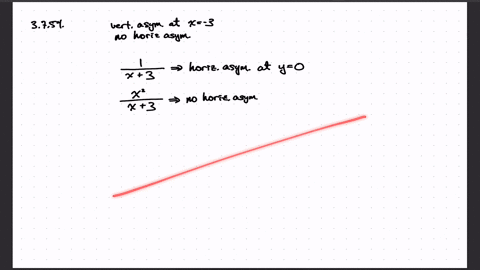 3.7.54. vert. asym at x=-3
no horiz asym
1/(x+3) ⇒ horiz. asym at y=0
x²/(x+3) ⇒ no horiz asym